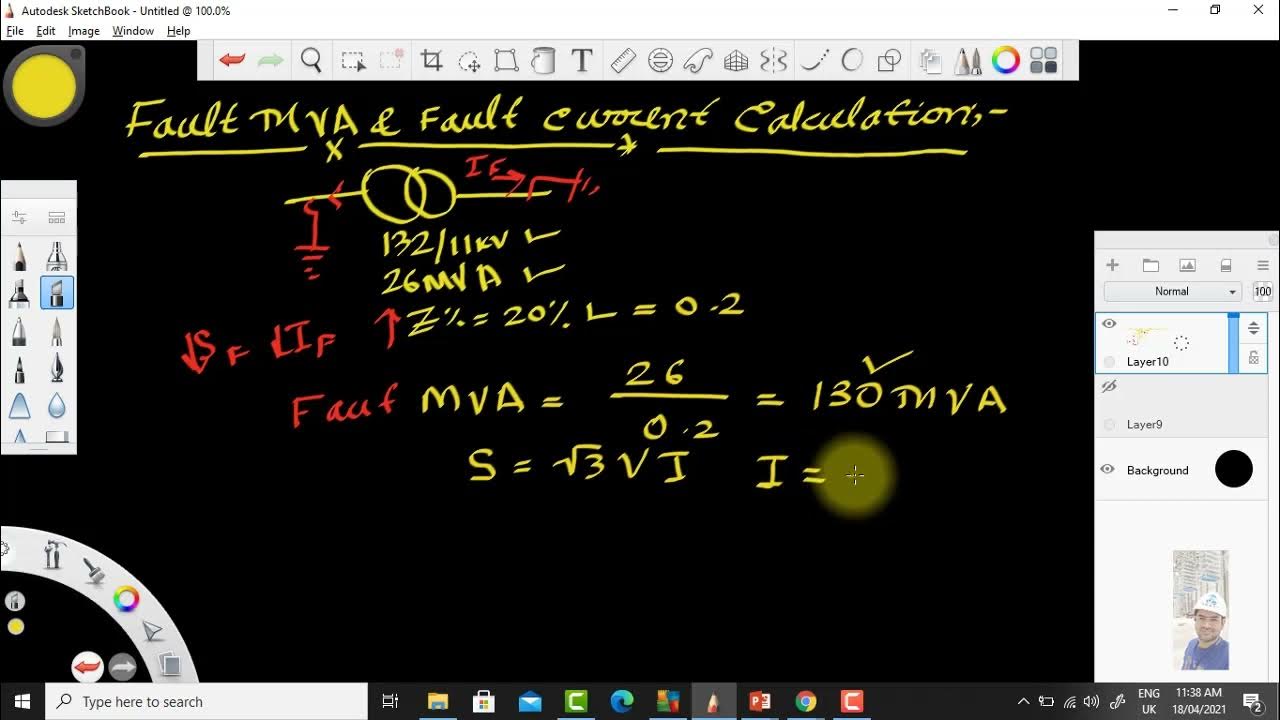 Autodesk SketchBook - Untitled @ 100.0%
File Edit Image Window Help
T
Fault MVA & Fault Current Calculation;-
IF
132/11kV
26MVA
Z% = 20% = 0.2
SF IF
Fault MVA = 26 / 0.2 = 130 MVA
S = √3 V I I =
Normal 100
Layer10
Layer9
Background
Type here to search
ENG
UK
11:38 AM
18/04/2021
2